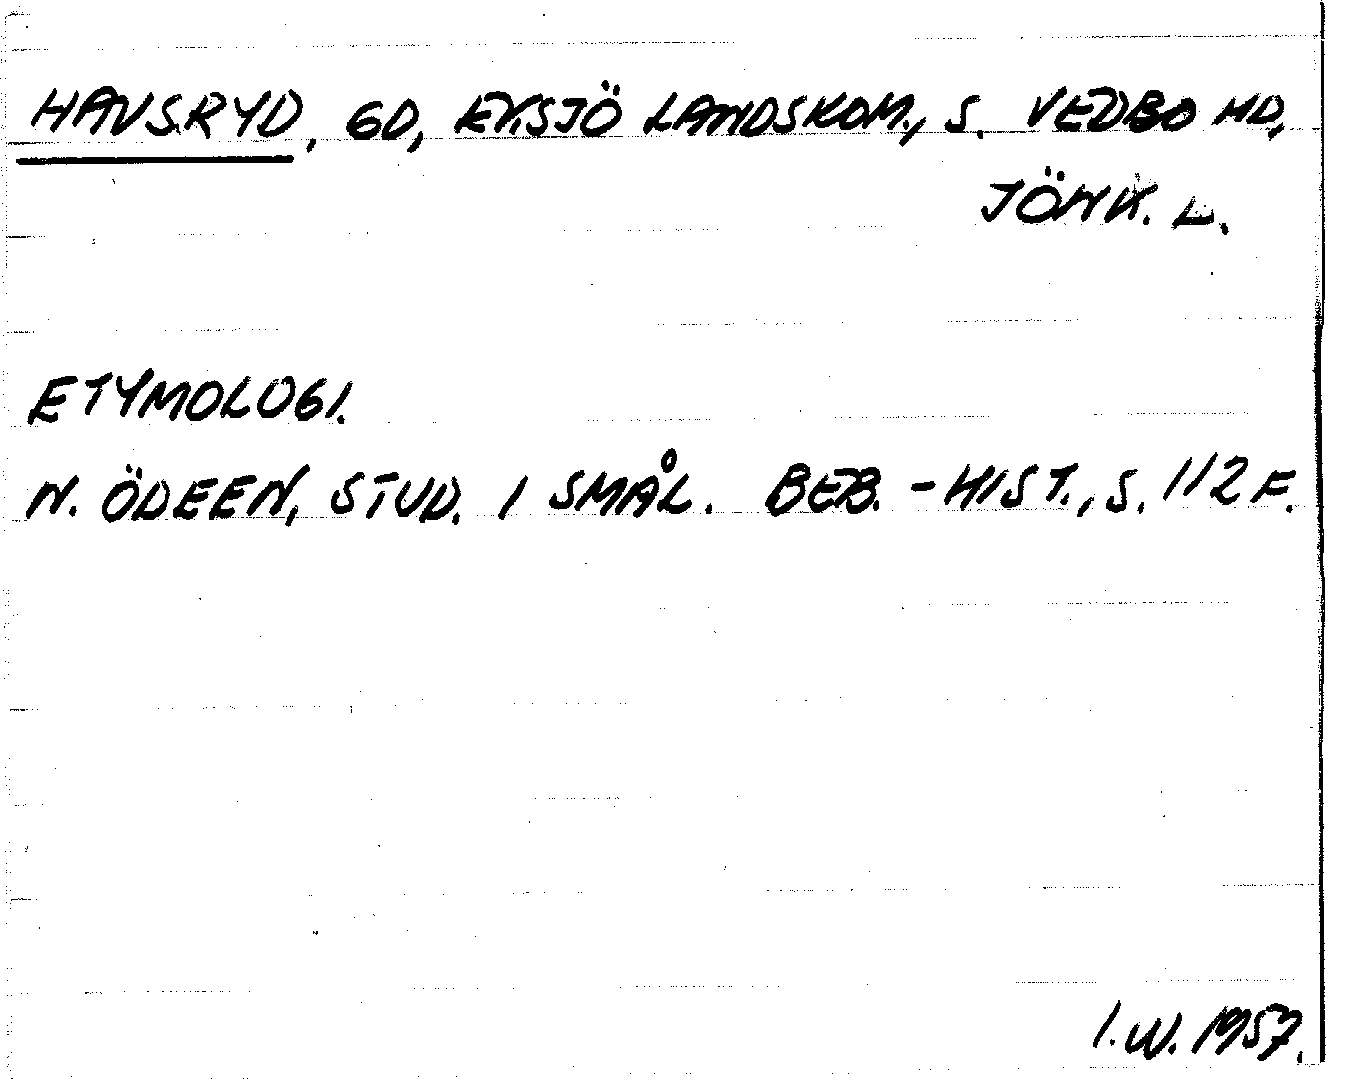 HAVSRYD, GD, EKSJÖ LANDSKOM., S. VEDBO HD,
JÖNK. L.
ETYMOLOGI.
N. ÖDEEN, STUD. I SMÅL. BEB.-HIST., S. 112 F.
I.W. 1957.